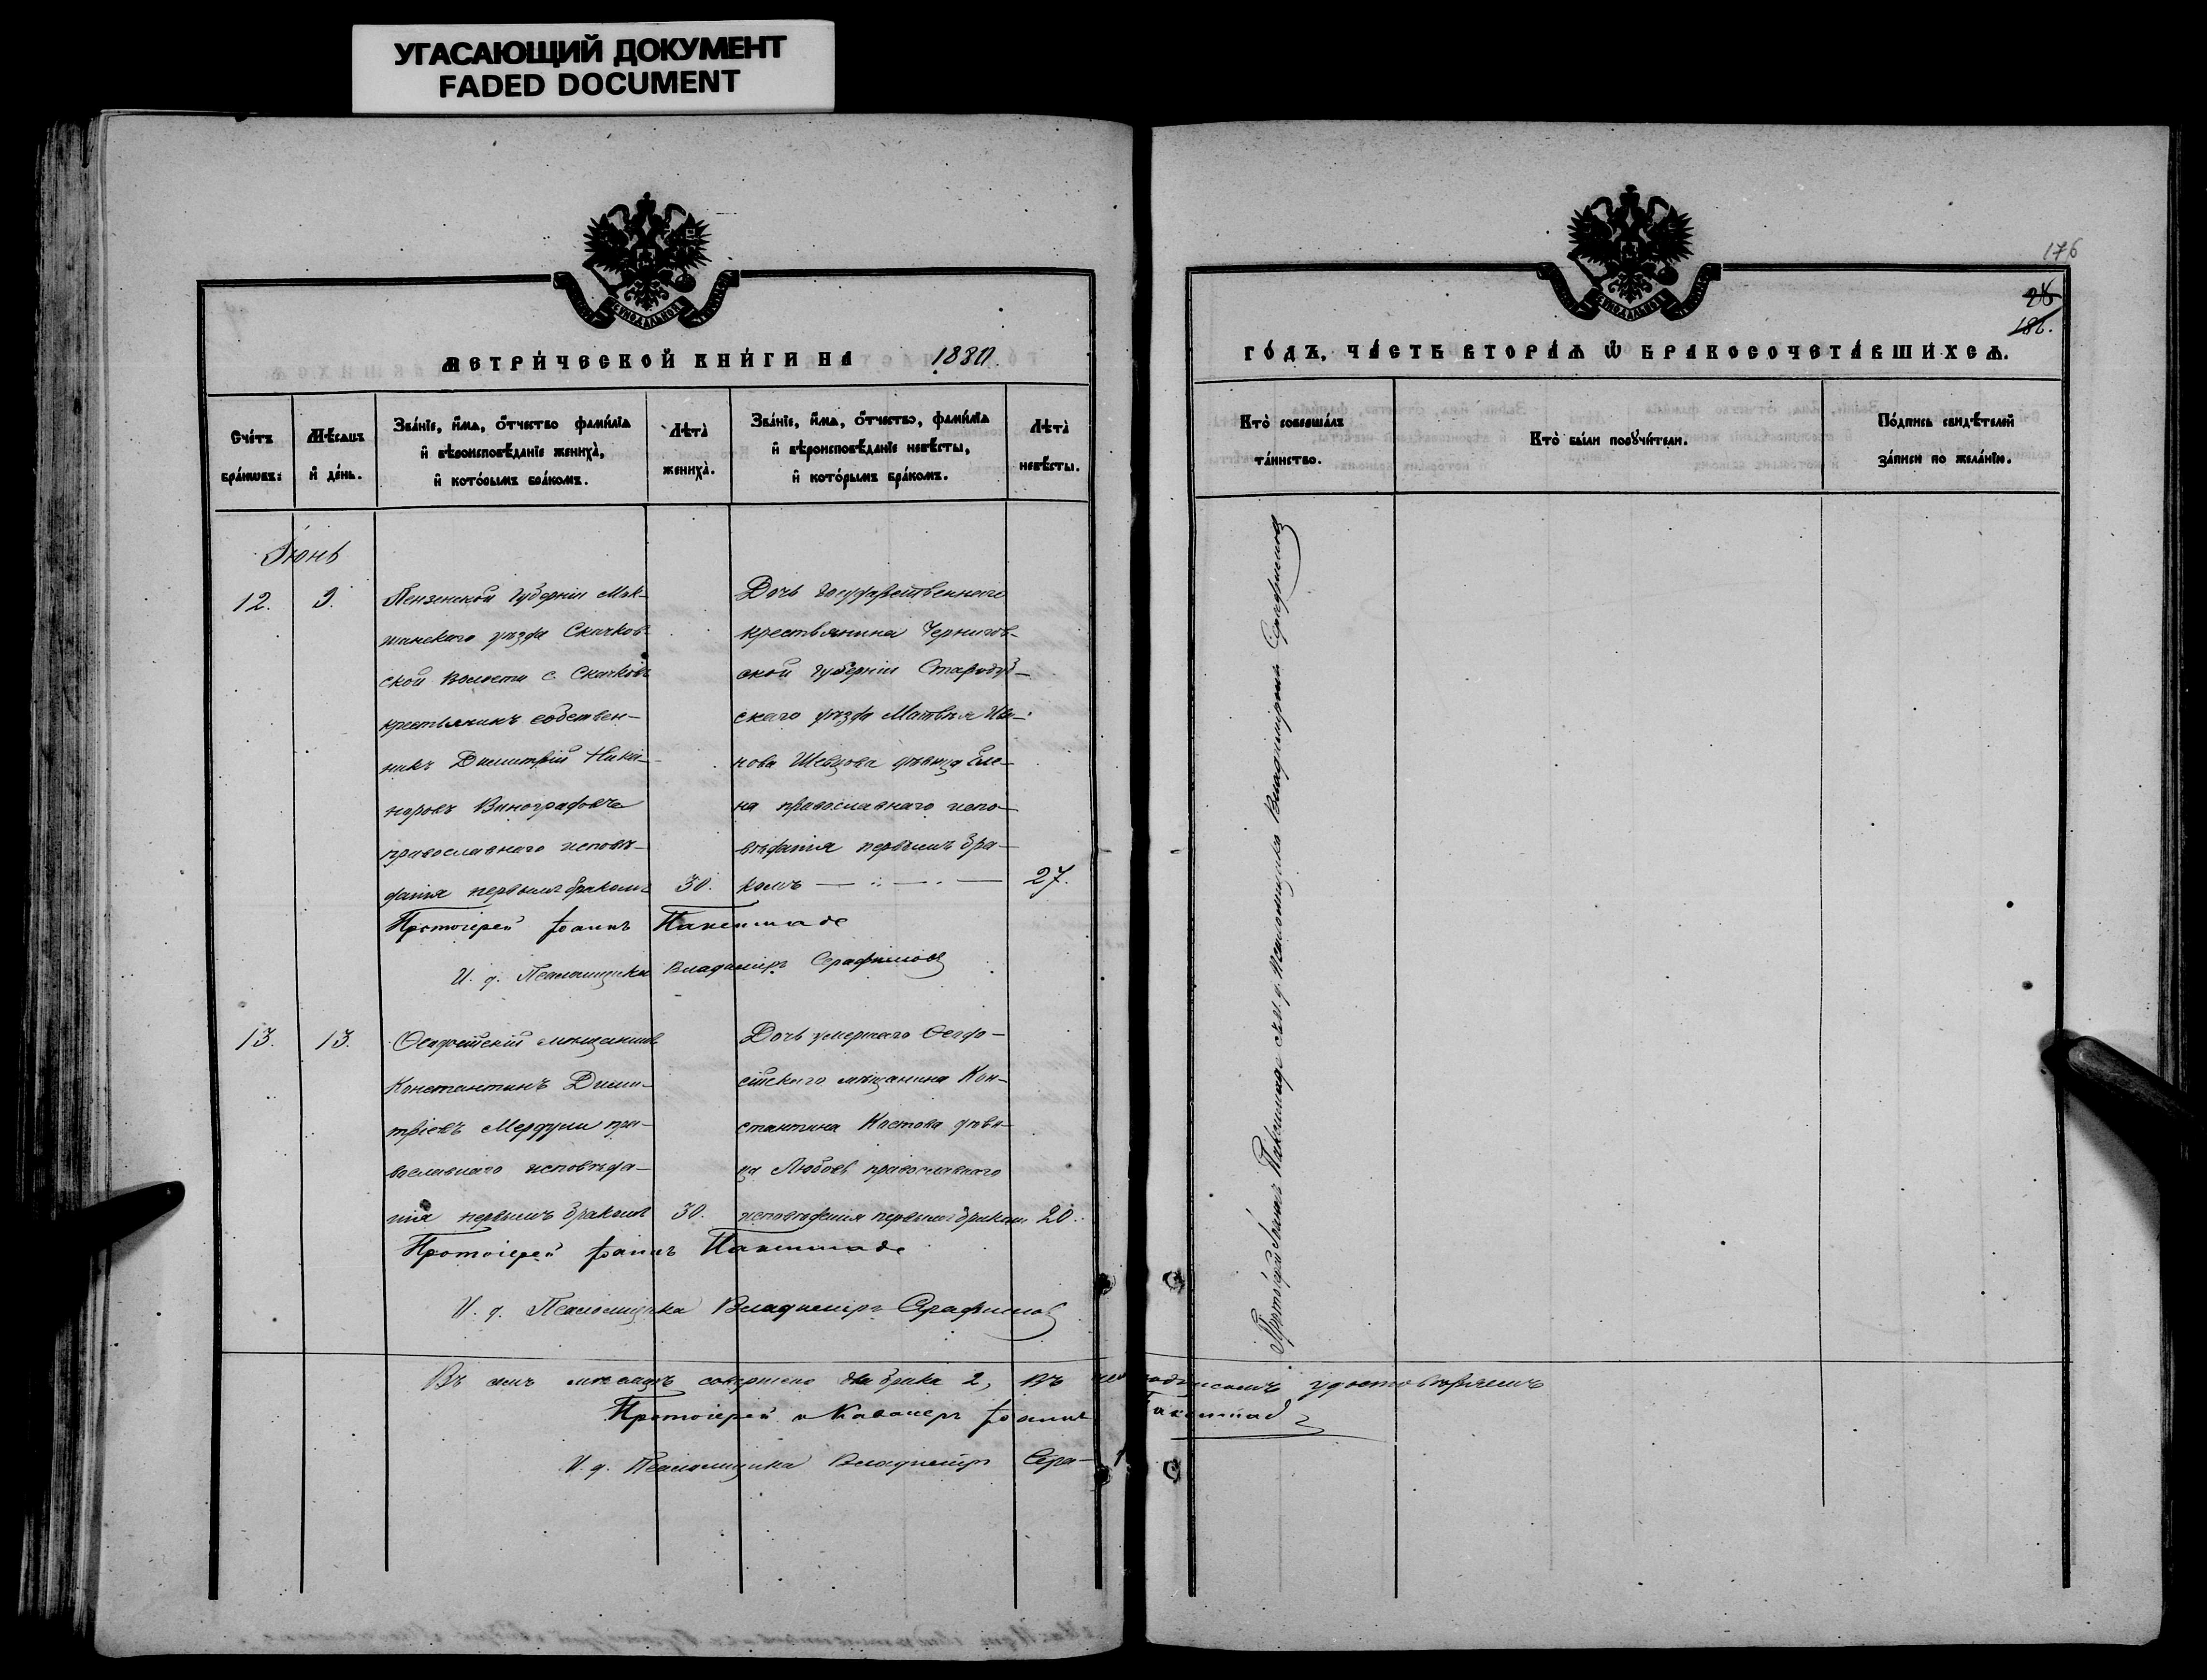 УГАСАЮЩИЙ ДОКУМЕНТ
FADED DOCUMENT
СѴНОДАЛЬНОЙ
МЕТРИ́ЧЕСКОЙ КНИ́ГИ НА 1880.
Сче́тъ бра́ковъ:
Мѣ́сяцъ и҆ де́нь.
Зва́нїе, и҆́мѧ, ѻ҆́тчество фами́лїѧ
и҆ вѣроисповѣ́данїе жениха̀,
и҆ кото́рымъ бра́комъ.
Лѣта̀
жениха̀.
Зва́нїе, и҆́мѧ, ѻ҆́тчество, фами́лїѧ
и҆ вѣроисповѣ́данїе невѣ́сты,
и҆ кото́рымъ бра́комъ.
Лѣта̀
невѣ́сты.
Іюнь
12.
3.
Пензенской губерніи Мок-
шанскаго уѣзда Скачков-
ской волости с. Скачковъ
крестьянинъ собствен-
никъ Димитрій Ники-
форовъ Виноградовъ
православнаго исповѣ-
данія первымъ бракомъ
30.
Дочь государственнаго
крестьянина Чернигов-
ской губерніи Стародуб-
скаго уѣзда Матвѣя Ива-
нова Шевцова дѣвица Еле-
на православнаго испо-
вѣданія первымъ бра-
комъ
27.
Протоіерей Іоаннъ Паксимаде
И. д. Псаломщика Владиміръ Серафимовъ
13.
13.
Ѳеодосійскій мѣщанинъ
Константинъ Дими-
тріевъ Мердули пра-
вославнаго исповѣда-
нія первымъ бракомъ
30.
Дочь умершаго Ѳеодо-
сійскаго мѣщанина Кон-
стантина Костова дѣви-
ца Любовь православнаго
исповѣданія первымъ бракомъ
20.
Протоіерей Іоаннъ Паксимаде
И. д. Псаломщика Владиміръ Серафимовъ
Въ семъ мѣсяцѣ совершено два брака 2, въ удостовѣряемъ
Протоіерей и Кавалеръ Іоаннъ Паксимад
И. д. Псаломщика Владиміръ Сера-
176
28
186.
СѴНОДАЛЬНОЙ
ГО́ДЪ, ЧА́СТЬ ВТОРА́Ѧ Ѡ҆ БРАКОСОЧЕТА́ВШИХСѦ.
Кто̀ соверша́лъ
та́инство.
Кто̀ бы́ли порꙋчи́тели.
По́дпись свидѣ́телей
за́писи по жела́нїю.
Протоіерей Іоаннъ Паксимаде съ и. д. Псаломщика Владиміромъ Серафимовъ